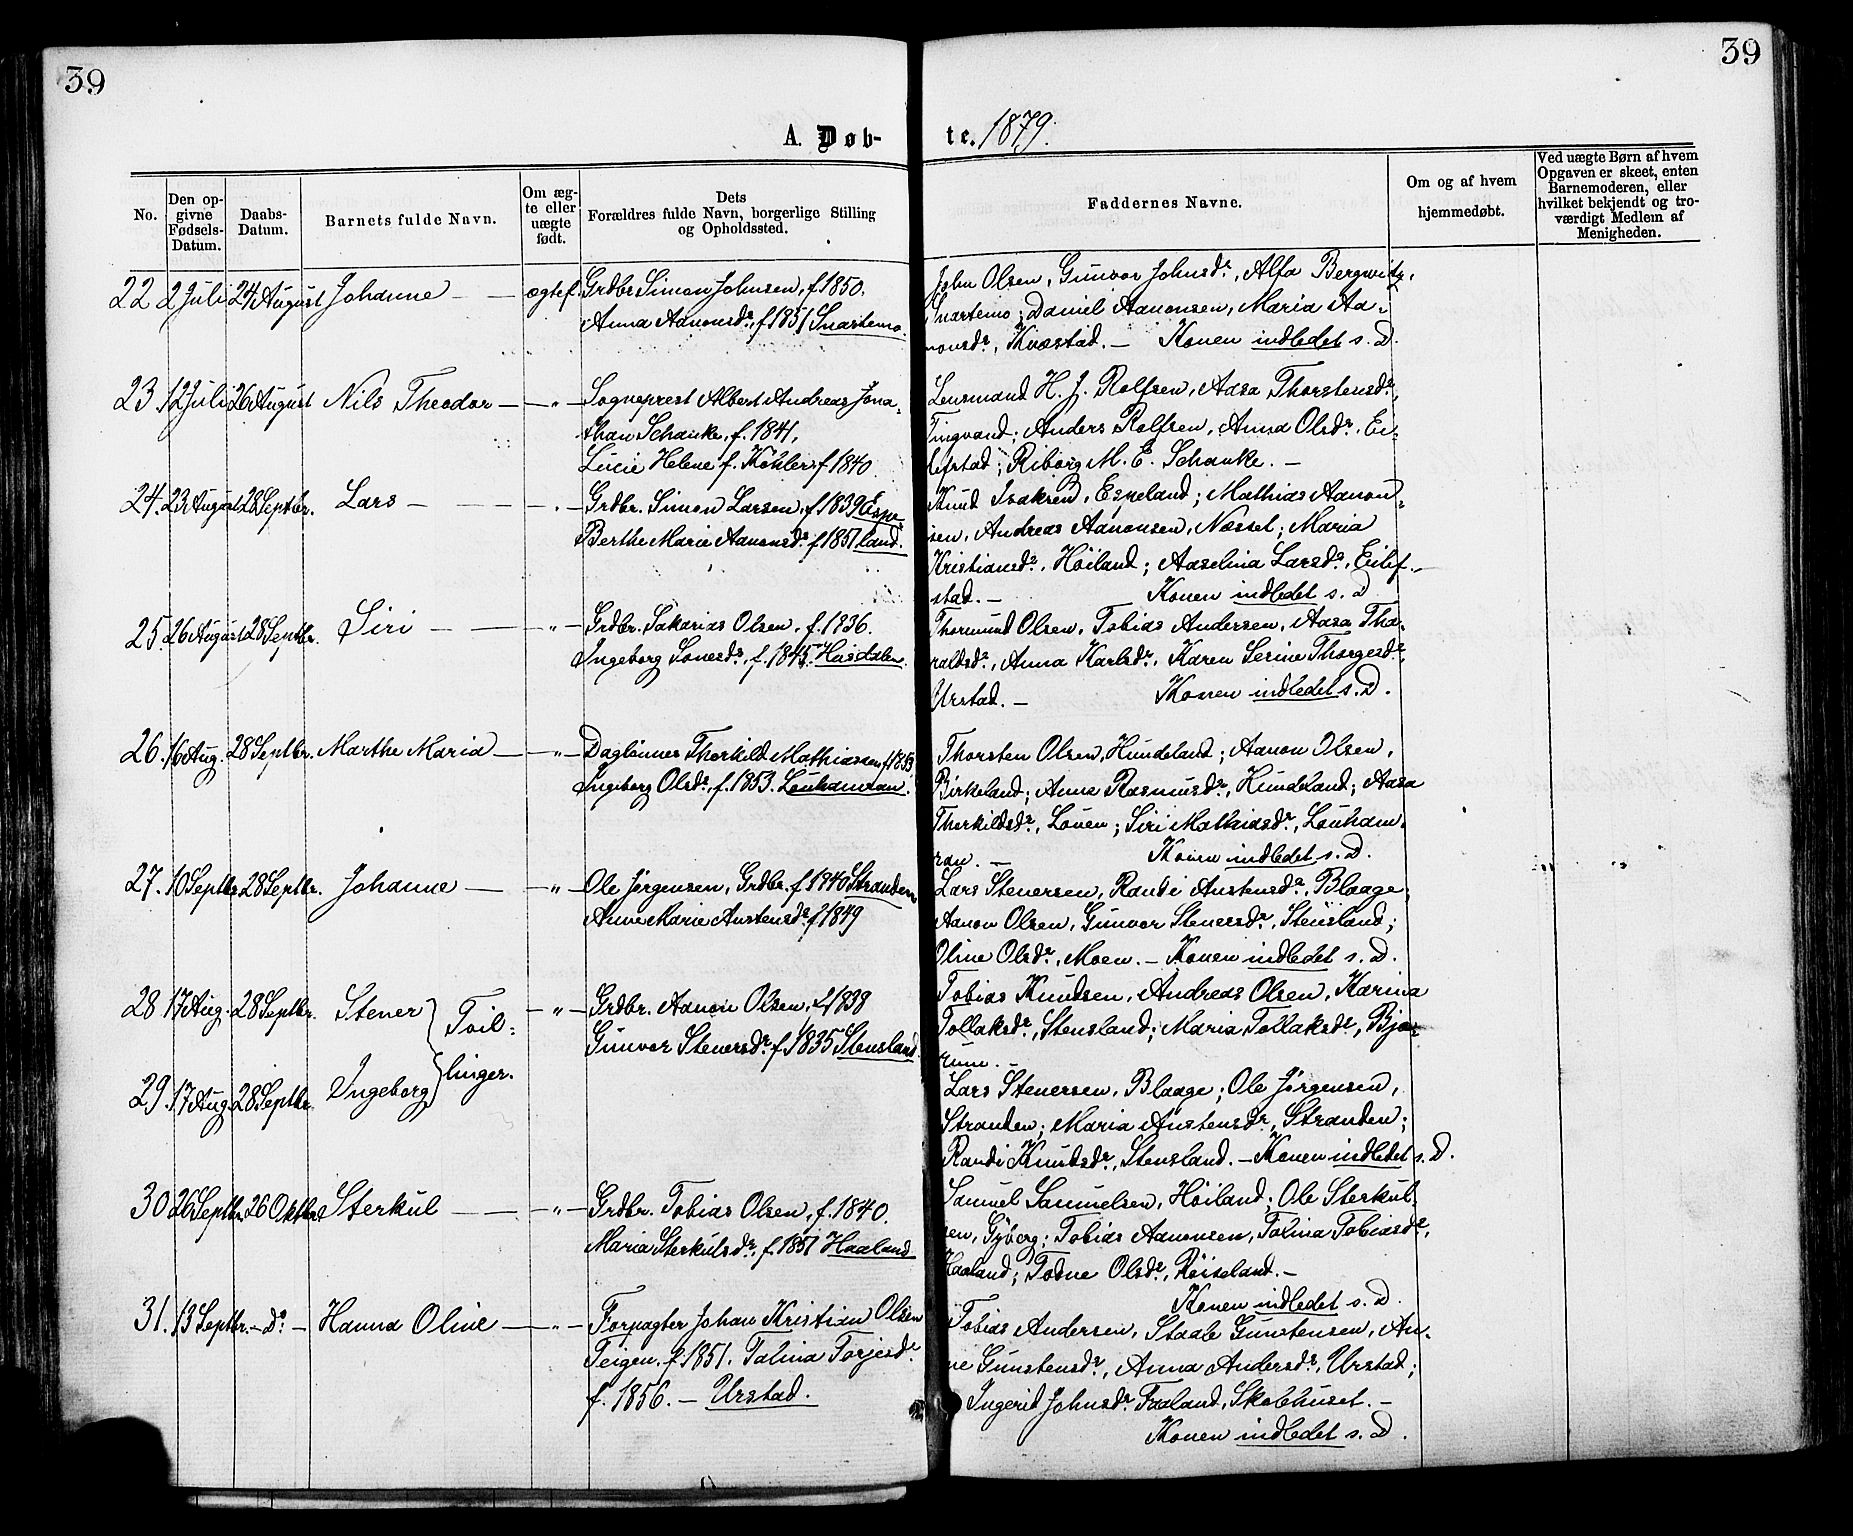 39
39
A. Døb-
te. 1879.
No.
Den op-
givne
Fødsels-
Datum.
Daabs-
Datum.
Barnets fulde Navn.
Om æg-
te eller
uægte
født.
Dets
Forældres fulde Navn, borgerlige Stilling
og Opholdssted.
Faddernes Navne.
Om og af hvem
hjemmedøbt.
Ved uægte Børn af hvem
Opgaven er skeet, enten
Barnemoderen, eller
hvilket bekjendt og tro-
værdigt Medlem af
Menigheden.
22 2 Juli 24 August Johanne — — ægtef. Grdbr. Simon Johnsen, f. 1850.
Anna Aanonsdr., f. 1851 Snartemo.
John Olsen, Gunvor Johnsdr., Alfa Bergwitz,
Snartemo; Daniel Aanonsen, Maria Aa-
nonsdr., Kvæstad. — Konen indledet s. D.
23. 12 Juli 26 August Nils Theodor — „ — Sogneprest Albert Andreas Jona-
than Schanke, f. 1841,
Lucie Helene f. Køhler f 1840
Lensmand H. J. Rolfsen, Aasa Thorstensdr.,
Tingvand; Anders Rolfsen, Anna Olsdr., Ei-
lefstad; Riborg M. E. Schanke. —
24. 23 August 28 Septbr. Lars — — — „ — Grdbr. Simon Larsen, f 1839 Espe-
Berthe Marie Aanonsdr. f 1851 land.
Knud Isaksen, Espeland; Mathias Aanon-
sen, Andreas Aanonsen, Næsset; Maria
Kristiansdr., Høiland; Aaselina Larsdr., Eilef-
stad. — Konen indledet s. D
25. 26 August 28 Septbr. Siri — — „ — Grdbr. Sakarias Olsen, f. 1836.
Ingeborg Sonesdr., f. 1845. Hasdalen.
Thormund Olsen, Tobias Andersen, Aasa Tha-
raldsdr., Anna Karlsdr., Karen Serine Thorgesdr.,
Urstad. — Konen indledet s. D.
26. 16 Aug. 28 Septbr. Marthe Maria — „ — Dagløнner Therkild Mathiassen f 1853
Ingeborg Olsdr., f. 1853. Lauhamran.
Thorsten Olsen, Hundeland; Aanon Olsen,
Birkeland; Anna Rasmusdr., Hundeland; Aasa
Therkildsdr., Louen; Siri Mathiasdr., Lauham-
ran. — Konen indledet s. D.
27. 10 Septbr 28 Septbr. Johanne — „ — Ole Jørgensen, Grdbr. f 1840 Stranden
Anne Marie Austensdr. f 1849
Lars Stenersen, Randi Austensdr., Blaage;
Aanon Olsen, Gunvor Stenersdr., Stensland;
Oline Olsdr., Moen. — Konen indledet s. D.
28 17 Aug. 28 Septbr. Stener } Tvil- — „ — Grdbr. Aanon Olsen, f 1838
Gunvor Stenersdr. f 1835 Stensland.
Tobias Knudsen, Andreas Olsen, Karina
Tollaksdr., Stensland; Maria Tollaksdr., Bjør-
rum. —
29. 17 Aug. 28 Septbr. Ingeborg } linger.
Lars Stenersen, Blaage; Ole Jørgensen,
Stranden; Maria Austensdr., Stranden;
Randi Knudsdr., Stensland. — Konen indledet s. D.
30 26 Septbr 26 Oktbr Sterkul — — „ — Grdbr. Tobias Olsen, f. 1840.
Maria Sterkulsdr., f. 1851 Haaland
Samuel Samuelsen, Høiland; Ole Sterkul-
sen, Gyberg; Tobias Aanonsen, Tolina Tobiasdr.,
Haaland; Todne Olsdr., Røiseland. —
Konen indledet s. D.
31. 13 Septbr. — Do. — Hanna Oline — „ — Forpagter Johan Kristian Olsen
Teigen, f. 1851. Talina Torjesdr.
f. 1856. — Urstad.
Tobias Andersen, Staale Gunstensen, An-
ne Gunstensdr., Anna Andersdr., Urstad;
Ingerid Johnsdr. Faaland, Skolehuset. —
Konen indledet s. D.